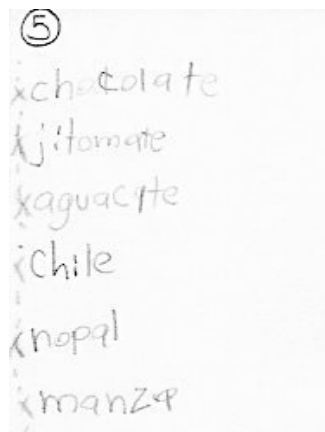 5
xchocolate
xjitomate
xaguacate
xchile
xnopal
xmanza